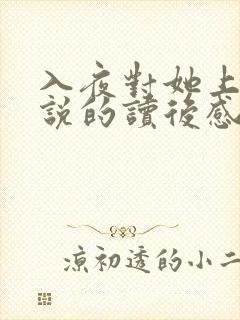 入夜對她上
說的讀後感
涼初透的小二